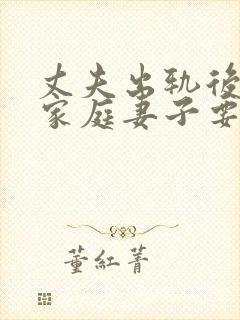 丈夫出轨後
家庭妻子要
董紅菁